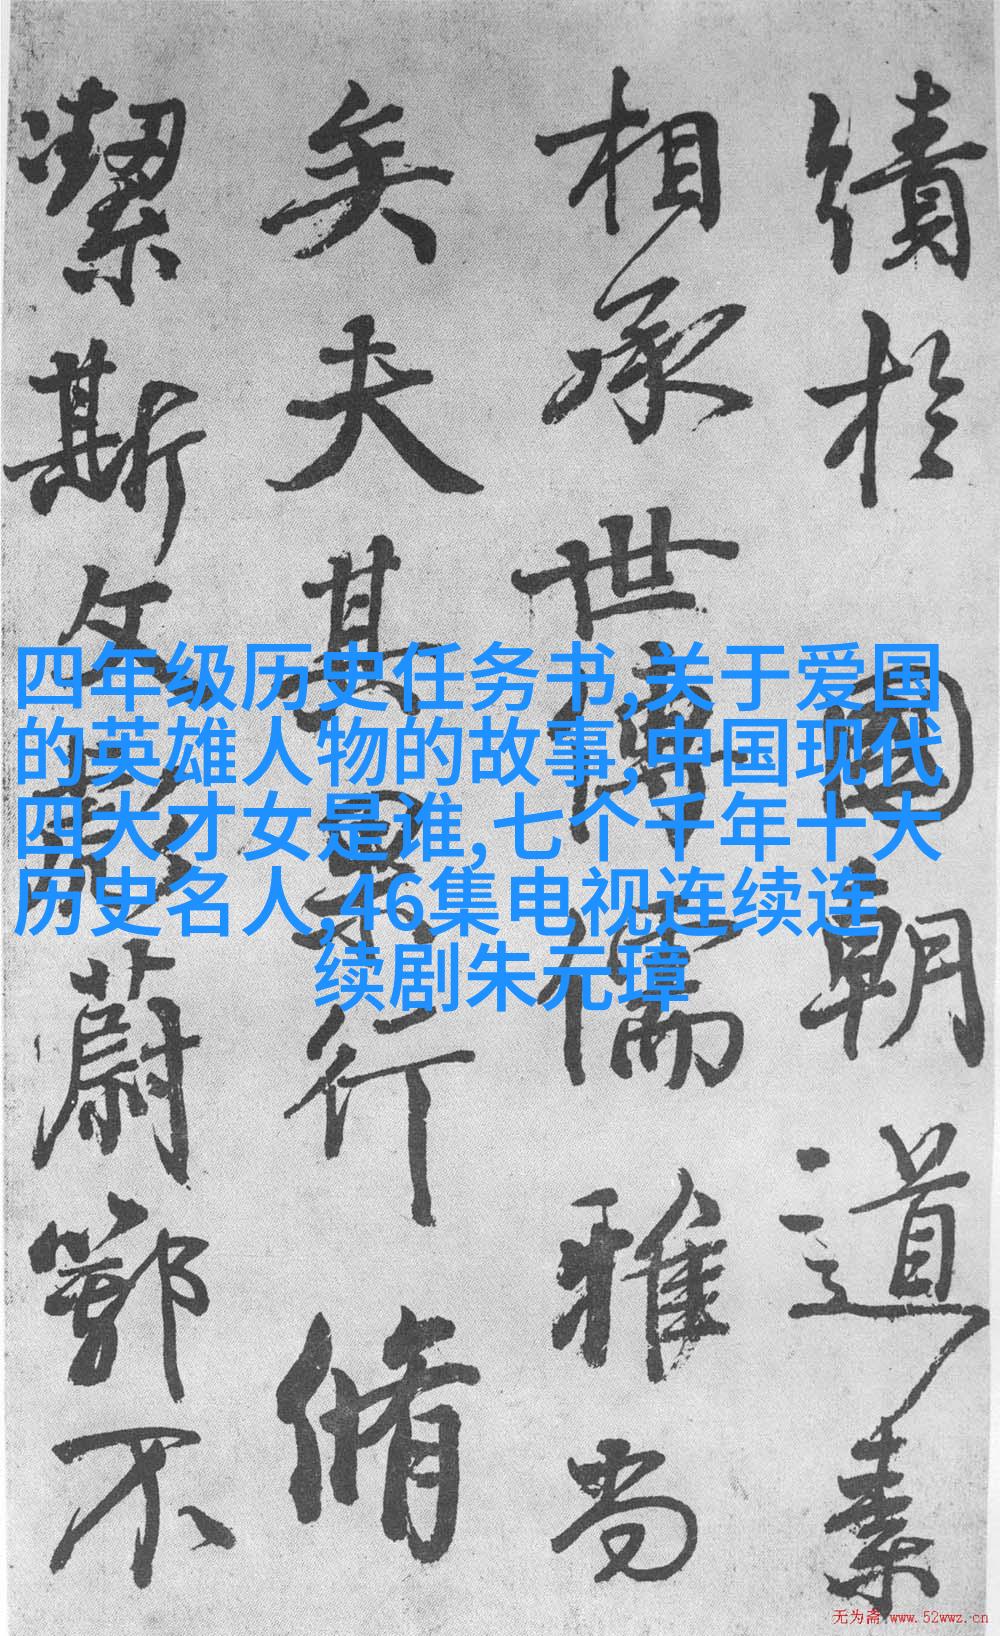 績於國朝道素
相承世傳儒雅尚
矣夫其果行脩
潔斯文彪蔚鄂不
四年级历史任务书,关于爱国
的英雄人物的故事,中国现代
四大才女是谁,七个千年十大
历史名人,46集电视连续连
续剧朱元璋
无为斋 www.52wwz.cn